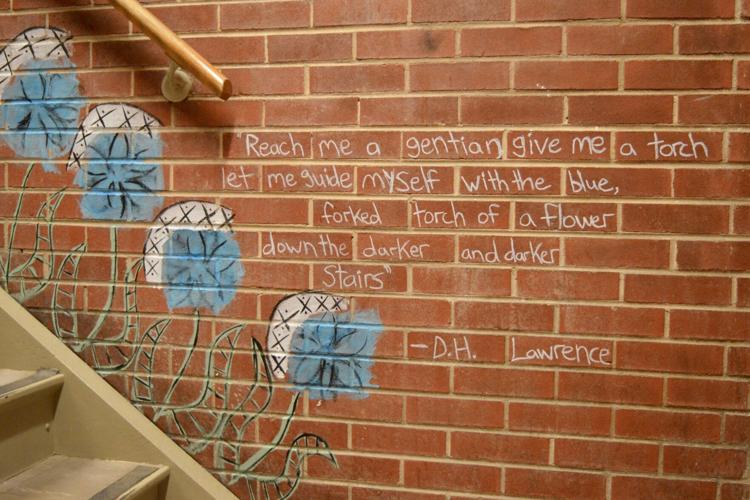 "Reach me a gentian, give me a torch
let me guide myself with the blue,
forked torch of a flower
down the darker and darker
Stairs"
-D.H. Lawrence